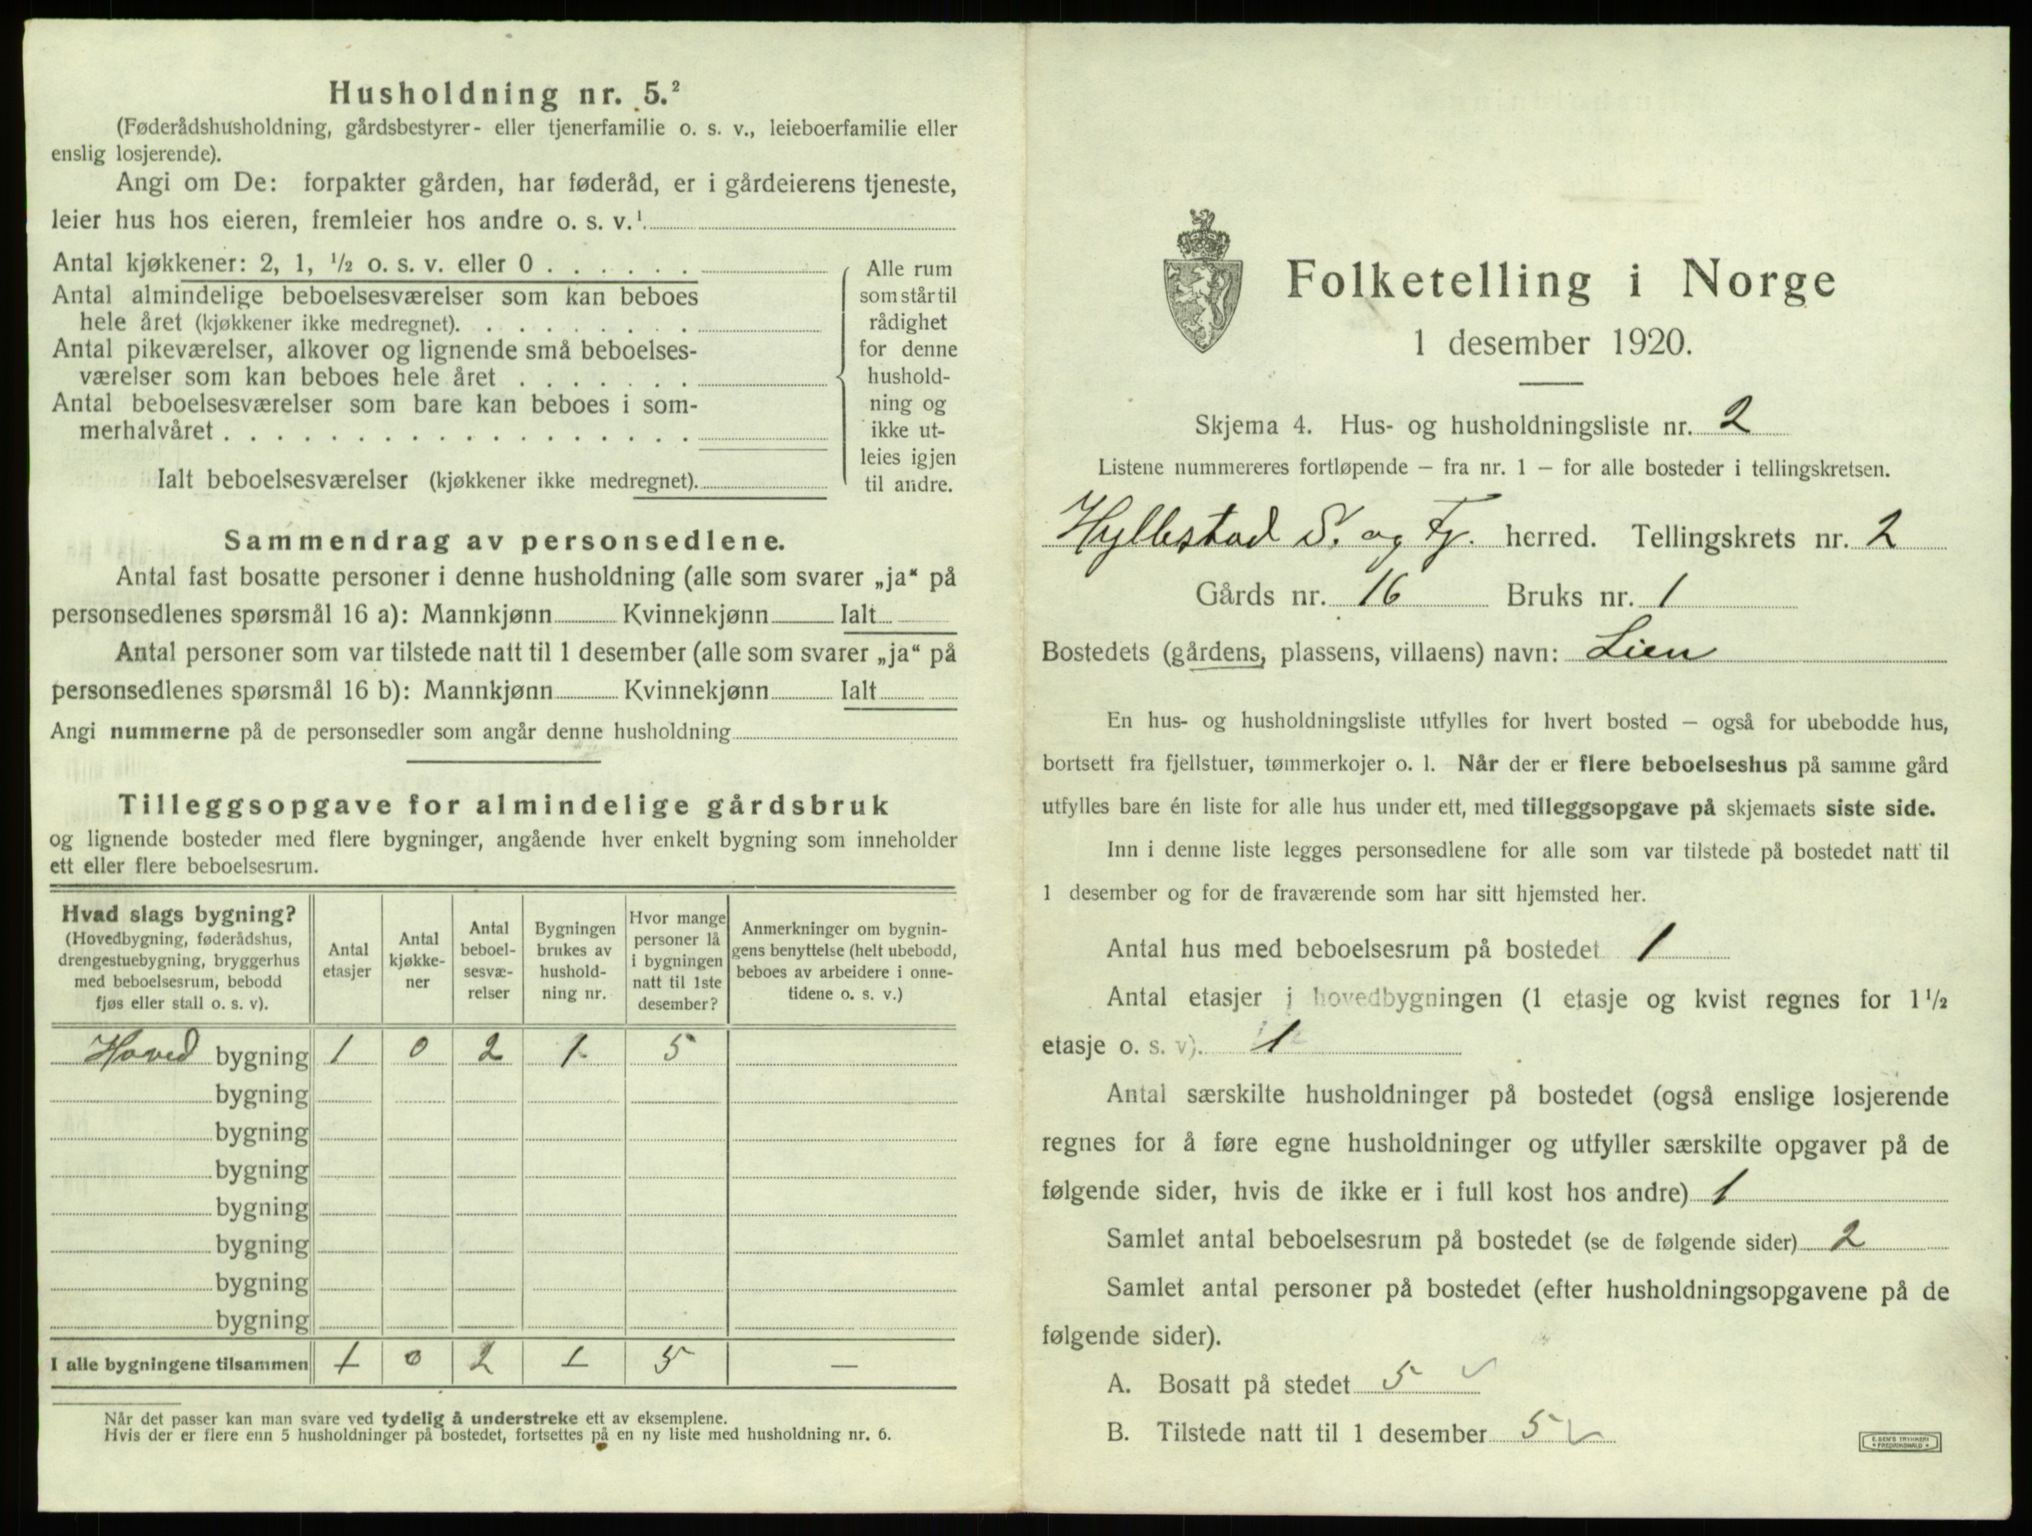 Husholdning nr. 5.²
(Føderådshusholdning, gårdsbestyrer- eller tjenerfamilie o. s. v., leieboerfamilie eller
enslig losjerende).
Angi om De: forpakter gården, har føderåd, er i gårdeierens tjeneste,
leier hus hos eieren, fremleier hos andre o. s. v.¹
Antal kjøkkener: 2, 1, ½ o. s. v. eller 0 . . . . . .
Antal almindelige beboelsesværelser som kan beboes
hele året (kjøkkener ikke medregnet). . . . . . . . .
Antal pikeværelser, alkover og lignende små beboelses-
værelser som kan beboes hele året . . . . . . .
Antal beboelsesværelser som bare kan beboes i som-
merhalvåret . . . . . . . . . . . . . . . . . .
Ialt beboelsesværelser (kjøkkener ikke medregnet).
Alle rum
som står til
rådighet
for denne
hushold-
ning og
ikke ut-
leies igjen
til andre.
Sammendrag av personsedlene.
Antal fast bosatte personer i denne husholdning (alle som svarer „ja“ på
personsedlenes spørsmål 16 a): Mannkjønn Kvinnekjønn Ialt
Antal personer som var tilstede natt til 1 desember (alle som svarer „ja“ på
personsedlenes spørsmål 16 b): Mannkjønn Kvinnekjønn Ialt
Angi nummerne på de personsedler som angår denne husholdning
Tilleggsopgave for almindelige gårdsbruk
og lignende bosteder med flere bygninger, angående hver enkelt bygning som inneholder
ett eller flere beboelsesrum.
Hvad slags bygning?
(Hovedbygning, føderådshus,
drengestuebygning, bryggerhus
med beboelsesrum, bebodd
fjøs eller stall o. s. v).
Antal
etasjer
Antal
kjøkke-
ner
Antal
beboel-
sesvæ-
relser
Bygningen
brukes av
hushold-
ning nr.
Hvor mange
personer lå
i bygningen
natt til 1ste
desember?
Anmerkninger om bygnin-
gens benyttelse (helt ubebodd,
beboes av arbeidere i onne-
tidene o. s. v.)
Hoved bygning 1 0 2 1 5
bygning
bygning
bygning
bygning
bygning
bygning
bygning
I alle bygningene tilsammen 1 0 2 1 5 —
Når det passer kan man svare ved tydelig å understreke ett av eksemplene.
Hvis der er flere enn 5 husholdninger på bostedet, fortsettes på en ny liste med husholdning nr. 6.
Folketelling i Norge
1 desember 1920.
Skjema 4. Hus- og husholdningsliste nr. 2
Listene nummereres fortløpende – fra nr. 1 – for alle bosteder i tellingskretsen.
Hyllestad S. og Fj. herred. Tellingskrets nr. 2
Gårds nr. 16 Bruks nr. 1
Bostedets (gårdens, plassens, villaens) navn: Lien
En hus- og husholdningsliste utfylles for hvert bosted – også for ubebodde hus,
bortsett fra fjellstuer, tømmerkojer o. l. Når der er flere beboelseshus på samme gård
utfylles bare én liste for alle hus under ett, med tilleggsopgave på skjemaets siste side.
Inn i denne liste legges personsedlene for alle som var tilstede på bostedet natt til
1 desember og for de fraværende som har sitt hjemsted her.
Antal hus med beboelsesrum på bostedet 1
Antal etasjer i hovedbygningen (1 etasje og kvist regnes for 1½
etasje o. s. v). 1
Antal særskilte husholdninger på bostedet (også enslige losjerende
regnes for å føre egne husholdninger og utfyller særskilte opgaver på de
følgende sider, hvis de ikke er i full kost hos andre) 1
Samlet antal beboelsesrum på bostedet (se de følgende sider) 2
Samlet antal personer på bostedet (efter husholdningsopgavene på de
følgende sider).
A. Bosatt på stedet 5 ✓
B. Tilstede natt til 1 desember 5 ✓